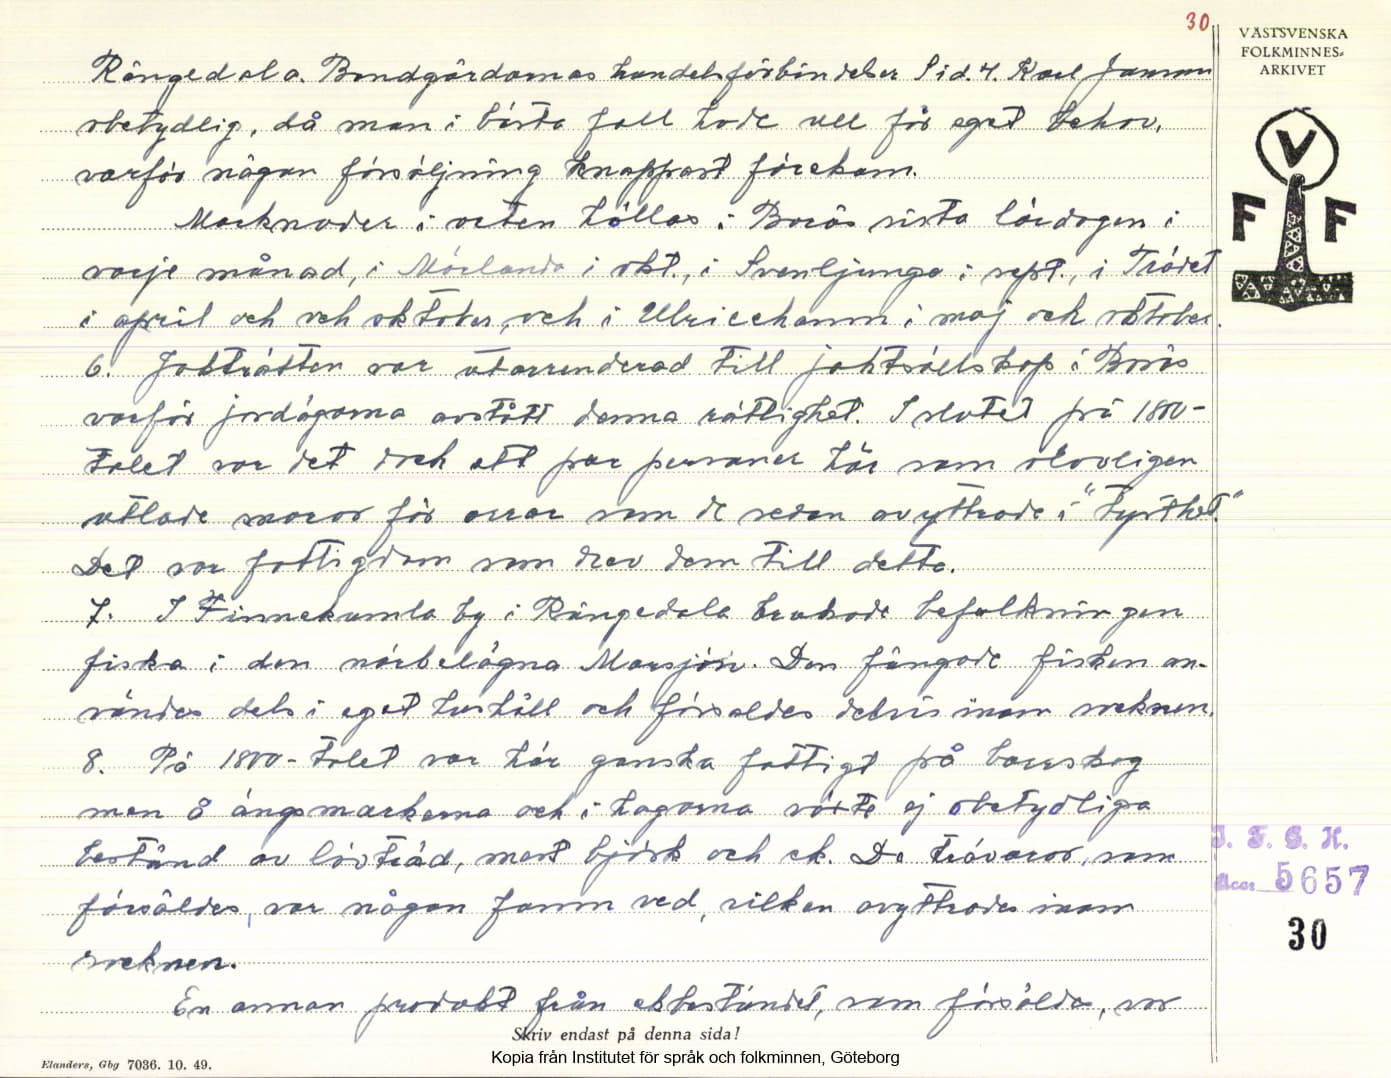 30
VÄSTSVENSKA
FOLKMINNES-
ARKIVET
V
F F
Rångedala. Bondgårdarnas handelsförbindelser Sid. 4. Karl Janson
obetydlig, då man i bästa fall hade ull för eget behov,
varför någon försäljning knappast förekom.
Marknader i orten hållas i Borås sista lördagen i
varje månad, i Mörlanda i okt., i Svenljunga i sept., i Trädet
i april och och oktober, och i Ulricehamn i maj och oktober.
6. Jakträtten var utarrenderad till jaktsällskap i Borås
varför jordägarna avstått denna rättighet. I slutet på 1800-
talet var det dock ett par personer här som olovligen
utlade snaror för orrar som de sedan avyttrade i "tysthet".
Det var fattigdom som drev dem till detta.
7. I Finnekumla by i Rångedala brukade befolkningen
fiska i den närbelägna Marsjön. Den fångade fisken an-
vändes dels i eget hushåll och försåldes delvis inom socknen.
8. På 1800-talet var här ganska fattigt på barrskog
men å ängsmarkerna och i hagarna växte ej obetydliga
bestånd av lövträd, mest björk och ek. De trävaror, som
försåldes, var någon famn ved, vilken avyttrades inom
socknen.
En annan produkt från ekbeståndet, som försålde, var
I. F. G. H.
Acc. 5657
30
Skriv endast på denna sida!
Elanders, Gbg 7036. 10. 49.
Kopia från Institutet för språk och folkminnen, Göteborg